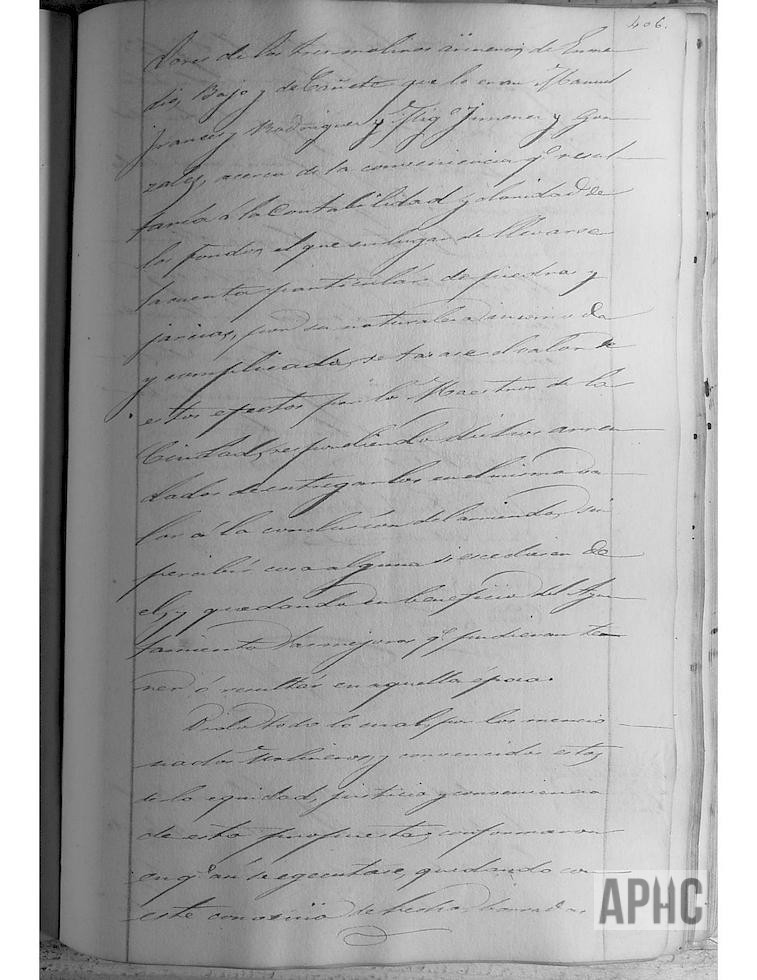 406.
dores de los tres molinos
dio, Bajo y de Cañete que lo eran Manuel
Frances y Rodriguez y Mig.l Jimenez y Gon
zalez, acerca de la conveniencia q.e resul
taria á la Contabilidad y claridad de
los fondos, el que en lugar de llevarse
la cuenta particular de piedras y
jarcias, por su naturaleza incomoda
y complicada, se tasase el valor de
estos efectos por los Maestros de la
Ciudad, respondiendo dichos arren
dados de entregarlos en el mismo va
lor á la conclusion del arriendo, sin
percibir cosa alguna si escediesen de
el, y quedando en beneficio del Ayun
tamiento las mejoras q.e pudieran te
ner ó resultar en aquella época.
Oido todo lo cual, por los mencio
nados Molineros, y convencidos estos
de la equidad, justicia y conveniencia
de esta propuesta, conformaron
en q.e asi se egecutase, quedando con
este